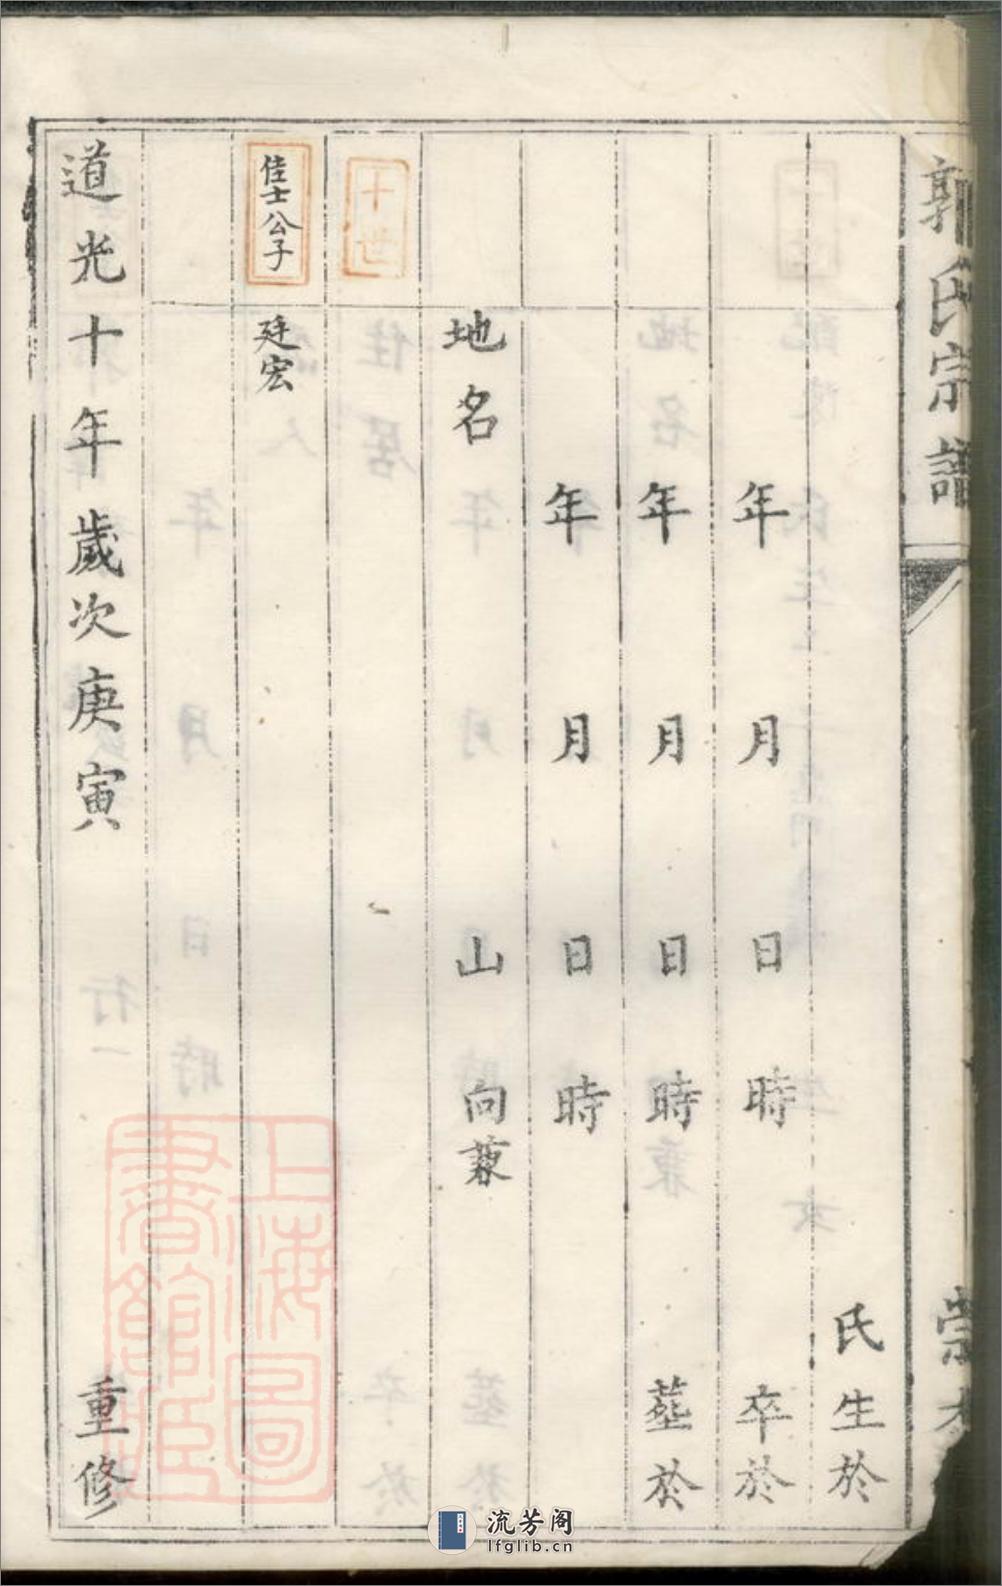 郭氏宗譜
崇本
氏生於
年月日時卒於
年月日時塟於
年月日時
地名山向蓛
十世
佳士公子
廷宏
道光十年歲次庚寅重修
上海圖書館藏
流芳阁
lfglib.cn